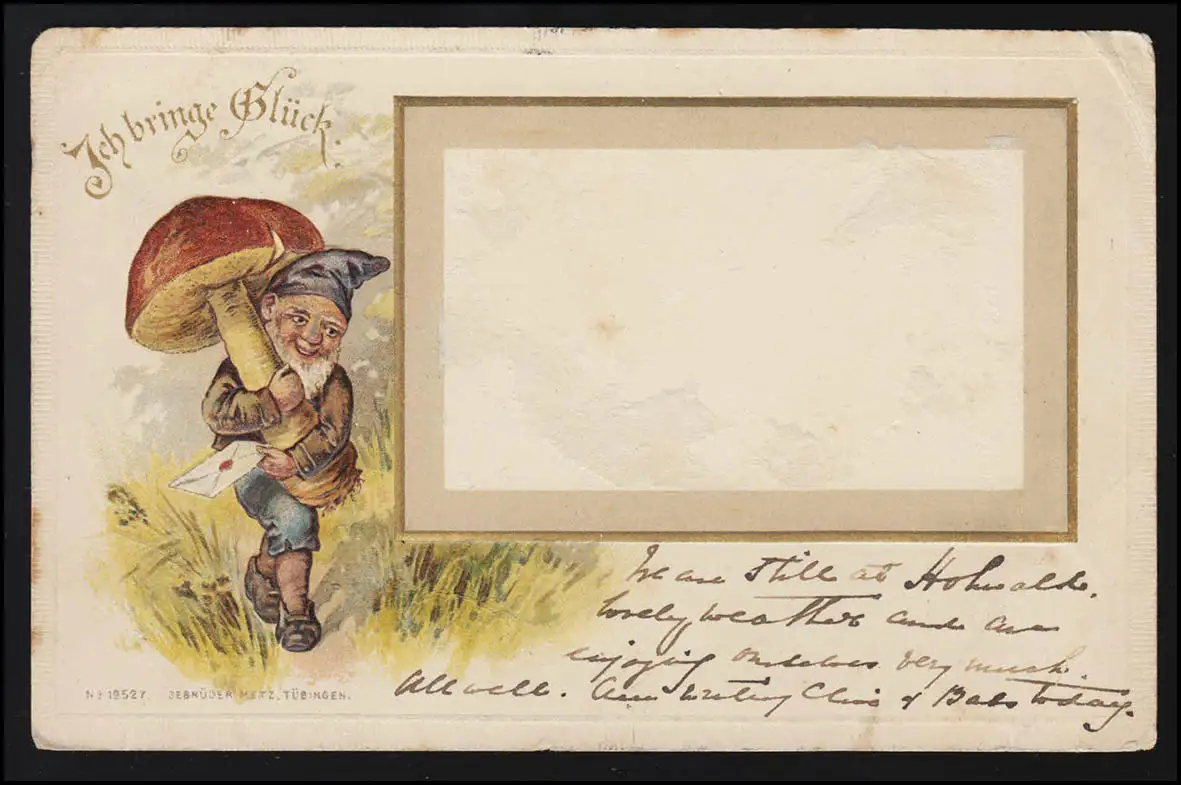 Ich bringe Glück.
We are still at Hohwald.
lovely weather and are
enjoying ourselves very much.
All well. Am writing & Babs today.
No 12527. GEBRÜDER METZ, TÜBINGEN.